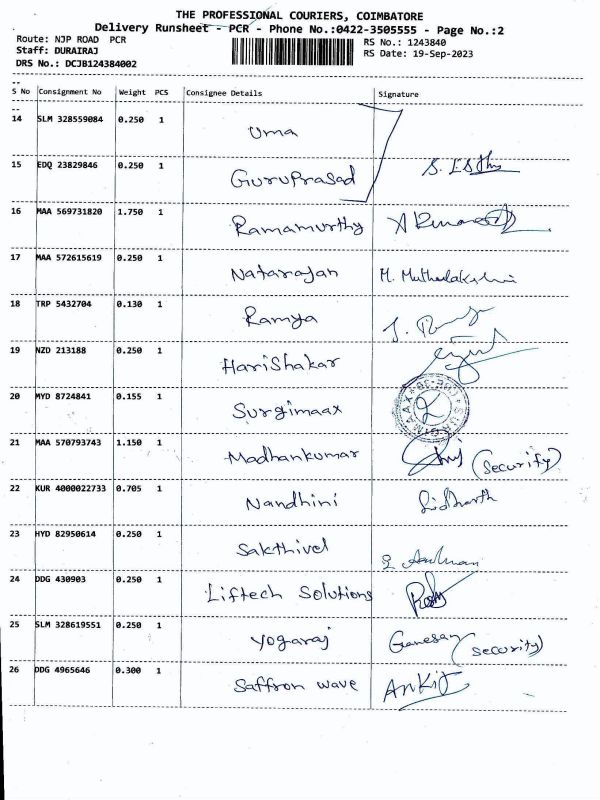 THE PROFESSIONAL COURIERS, COIMBATORE
Delivery Runsheet - PCR - Phone No.:0422-3505555 - Page No.:2
Route: NJP ROAD PCR
RS No.: 1243840
Staff: DURAIRAJ
RS Date: 19-Sep-2023
DRS No.: DCJB124384002
S No Consignment No Weight PCS Consignee Details Signature
14 SLM 328559084 0.250 1 Uma
15 EDQ 23829846 0.250 1 GuruPrasad
16 MAA 569731820 1.750 1 Ramamurthy
17 MAA 572615619 0.250 1 Natarajan M. Muthulakshmi
18 TRP 5432704 0.130 1 Ramya
19 NZD 213188 0.250 1 HariShakar
20 MYD 8724841 0.155 1 Surgimaax
21 MAA 570793743 1.150 1 Madhankumar (Security)
22 KUR 4000022733 0.705 1 Nandhini Sidharth
23 HYD 82950614 0.250 1 Sakthivel
24 DDG 430903 0.250 1 Liftech Solutions
25 SLM 328619551 0.250 1 Yogaraj Ganesan (security)
26 DDG 4965646 0.300 1 Saffron wave Ankit